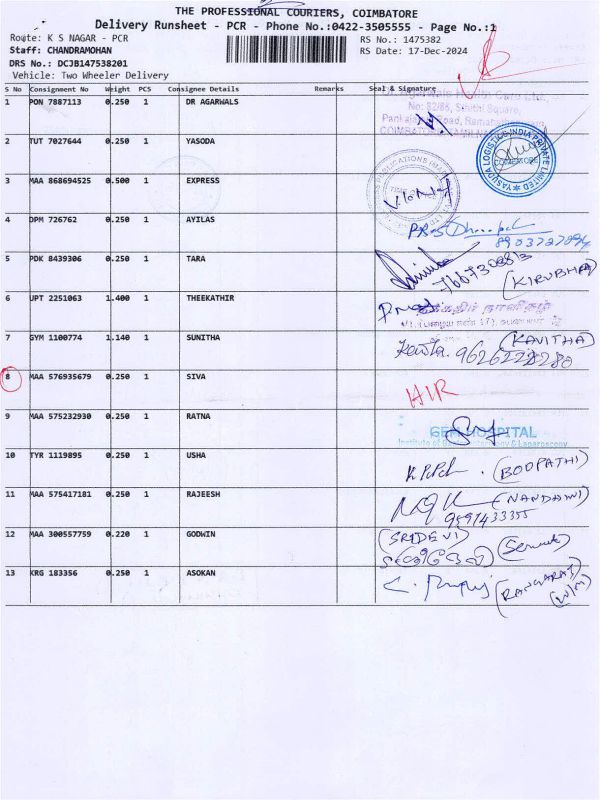 THE PROFESSIONAL COURIERS, COIMBATORE
Delivery Runsheet - PCR - Phone No.:0422-3505555 - Page No.:1
Route: K S NAGAR - PCR
RS No.: 1475382
Staff: CHANDRAMOHAN
RS Date: 17-Dec-2024
DRS No.: DCJB147538201
Vehicle: Two Wheeler Delivery
S No Consignment No Weight PCS Consignee Details Remarks Seal & Signature
1 PON 7887113 0.250 1 DR AGARWALS
No: 82/86, Sinthi Square,
2 TUT 7027644 0.250 1 YASODA
YASUDA LOGISTICS INDIA PRIVATE LIMITED
3 MAA 868694525 0.500 1 EXPRESS
4 DPM 726762 0.250 1 AYILAS
8903727094
5 PDK 8439306 0.250 1 TARA
(KIRUBHA)
6 JPT 2251063 1.400 1 THEEKATHIR
7 GYM 1100774 1.140 1 SUNITHA
(KAVITHA)
8 MAA 576935679 0.250 1 SIVA
HIR
9 MAA 575232930 0.250 1 RATNA
GEM HOSPITAL
10 TYR 1119895 0.250 1 USHA
(BOOPATHI)
11 MAA 575417181 0.250 1 RAJEESH
(NANDHINI)
12 MAA 300557759 0.220 1 GODWIN
(SRIDEVI)
13 KRG 183356 0.250 1 ASOKAN
(RANGARAJ